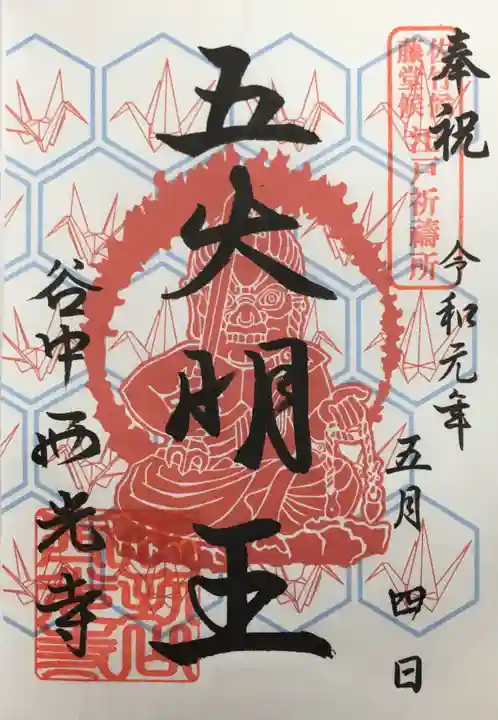 奉祝
佐竹侯
藤堂侯
江戸祈祷所
令和元年
五月四日
五大明王
谷中西光寺